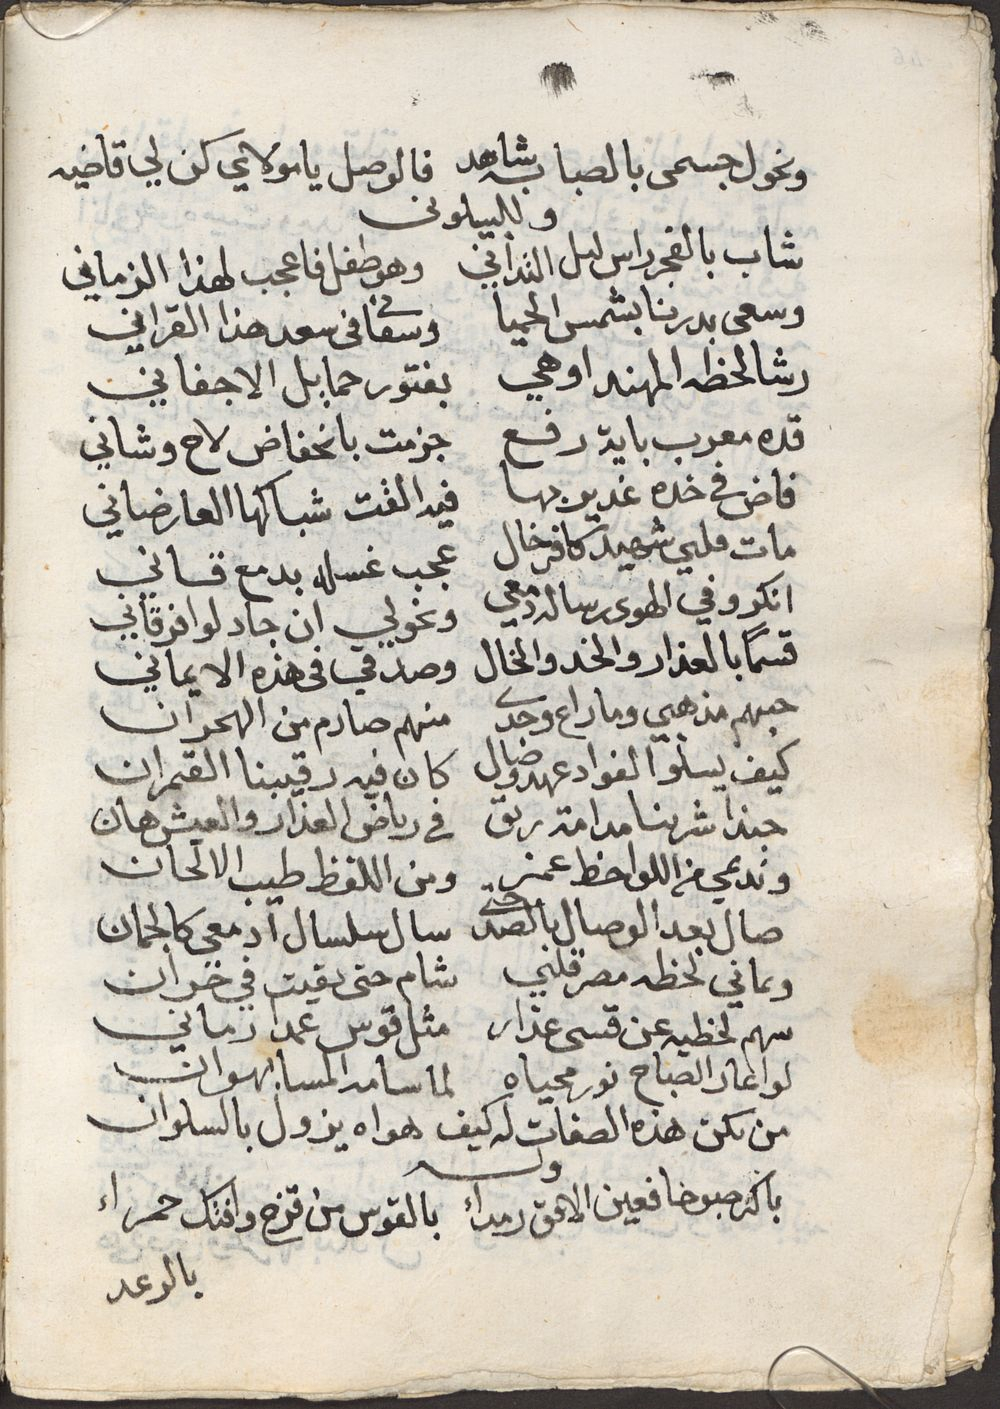 ونحول جسمى بالصبابة شاهد فالوصل يامولاي كن لي قاضيه
وللبيلونى
شاب بالفجر راس ليل التداني وهو طفل فاعجب لهذا الزماني
وسعى بدرنا بشمس الحميا وسقافى سعد هذا القراني
رشا لحظه المهند اوهي بفتور حمايل الاجفاني
قده معرب باية رفع جزمت بانخفاض لاح وشاني
فاض في خده غدير بها فيه القت شباكها العارضاني
مات قلبي شهيد كافر خال عجب غسله بدمع قاني
انكروفي الهوى رسالة دمعي ونحولي ان جادلوا فرقاني
قسمًا بالعذار والخد والخال وصدقي فى هذه الايماني
حبهم مذهبي وماراع وجدي منهم صارم من الهجران
كيف يسلوا الفواد عهد وصال كان فيه رقيبنا القمران
حبذا شربنا مدامة ريق في رياض العذار والعيش هان
ونديمي من اللواحظ غمز ومن اللفظ طيب الالحان
صال بعد الوصال بالصد حتى سال سلسال ادمعي كالجمان
وماني لحظه مصر قلبي شام حتى بقيت في خزان
سهم لحظيه عن قسى عذار مثل قوس عمدا رماني
لو اعار الصباح نور محياه لما سامه المسا بهوان
من تكن هذه الصفات له كيف هواه يزول بالسلوان
وله
باكر صبوحا فعين الافق رمداء بالقوس من قزح وافتك حمراء
بالرعد